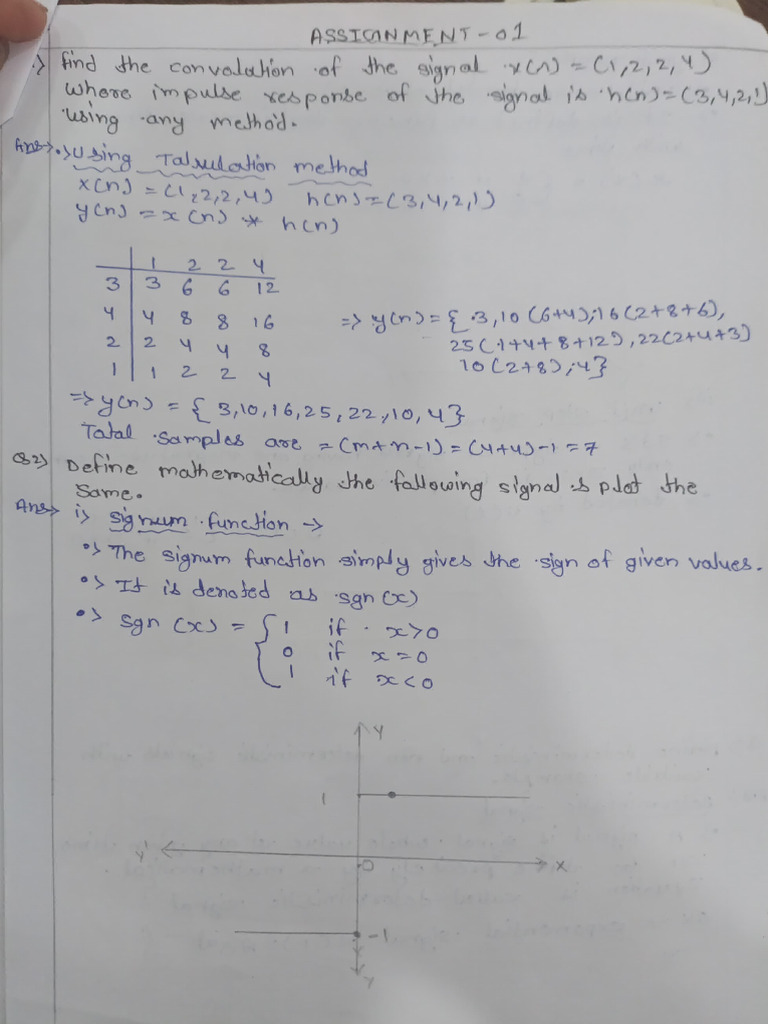 ASSIGNMENT-01
1) find the convolution of the signal x(n) = (1,2,2,4)
where impulse response of the signal is h(n)=(3,4,2,1)
using any method.
Ans→ •) Using Tabulation method
x(n) = (1,2,2,4) h(n)=(3,4,2,1)
y(n) = x(n) * h(n)
1 2 2 4
3 3 6 6 12
4 4 8 8 16
2 2 4 4 8
1 1 2 2 4
=> y(n) = { 3,10 (6+4), 16 (2+8+6),
25(1+4+8+12), 22(2+4+3)
10(2+8), 4}
=> y(n) = { 3,10,16,25,22,10,4}
Total samples are = (m+n-1) = (4+4)-1 = 7
Q2) Define mathematically the following signal & plot the
same.
Ans→ i) signum function →
•) The signum function simply gives the sign of given values.
•) It is denoted as sgn (x)
•) Sgn (x) = { 1 if x>0
0 if x=0
1 if x<0
Y
1
Y' 0 X
-1
Y